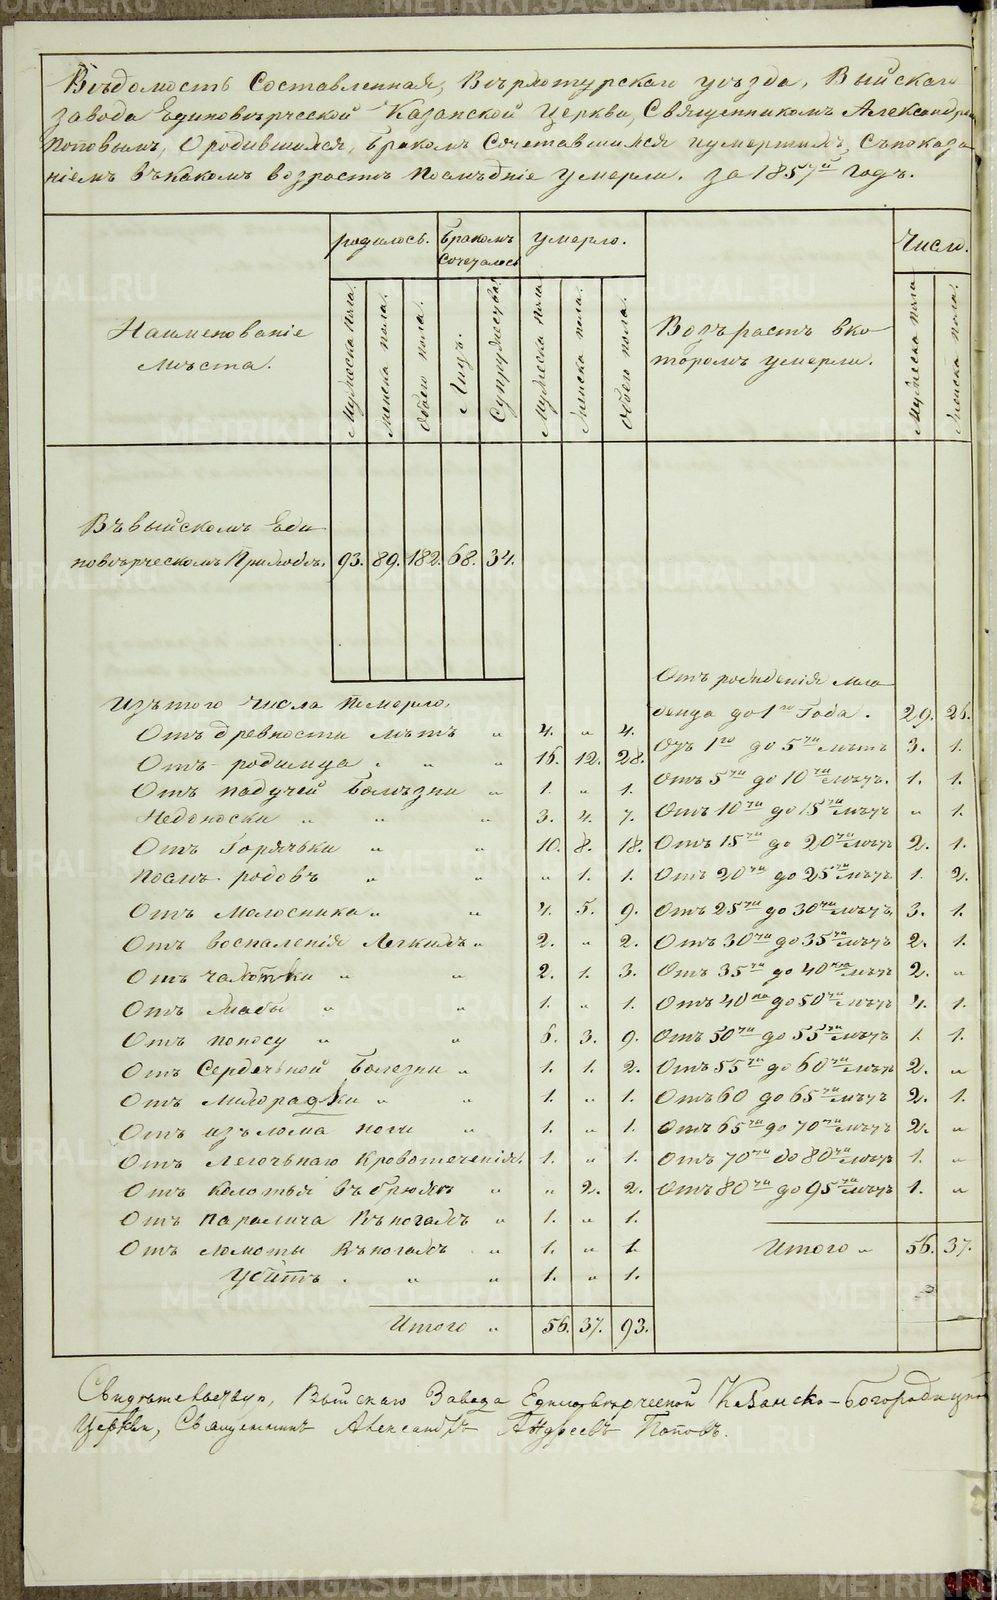 Вѣдомость Составленная, Верхотурскаго уѣзда, Выйскаго
завода Единовѣрческой Казанской Церкви, Священникомъ Александромъ
Поповымъ, О родившихся, бракомъ Сочетавшихся и умершихъ, съ показа
ніемъ въ какомъ возрастѣ Послѣдніе умерли. за 1857й годъ.
родилось. Бракомъ сочеталось умерло. Число.
Наименованіе мѣста. Мужеска пола. женска пола. Обоего пола. Лицъ. Супружествъ. Мужеска пола. женска пола. Обоего пола. Возрастъ въ ко-торомъ умерли. Мужеска пола женска пола.
Въ Выйскомъ Еди
новѣрческомъ Приходѣ. 93. 89. 182. 68. 34.
Изъ того числа Померло.
Отъ рожденія мла
денца до 1го Года. 29. 26.
Отъ древности лѣтъ „ 4. „ 4.
Отъ 1го до 5ти лѣтъ 3. 1.
Отъ родимца „ „ „ 16. 12. 28.
Отъ 5ти до 10ти лѣтъ. 1. 1.
Отъ падучей Болѣзни „ 1. „ 1.
Отъ 10ти до 15ти лѣтъ „ 1.
Недоноски „ „ „ 3. 4. 7.
Отъ 15ти до 20ти лѣтъ 2. 1.
Отъ Горячьки „ „ 10. 8. 18.
Отъ 20ти до 25ти лѣтъ 1. 2.
Послѣ родовъ „ „ „ 1. 1.
Отъ 25ти до 30ти лѣтъ. 3. 1.
Отъ Молосника „ „ 4. 5. 9.
Отъ 30ти до 35ти лѣтъ 2. 1.
Отъ воспаленія Легкихъ „ 2. „ 2.
Отъ 35ти до 40ка лѣтъ 2. „
Отъ чахотки „ „ 2. 1. 3.
Отъ 40ка до 50ти лѣтъ 4. 1.
Отъ „ „ 1. „ 1.
Отъ 50ти до 55ти лѣтъ 1. 1.
Отъ поносу „ „ 6. 3. 9.
Отъ 55ти до 60ти лѣтъ 2. „
Отъ Сердечьной Болезни „ 1. 1. 2.
Отъ 60 до 65ти лѣтъ 2. 1.
Отъ лихорадки „ „ 1. „ 1.
Отъ 65ти до 70ти лѣтъ 2. „
Отъ изълома ноги „ 1. „ 1.
Отъ 70ти до 80ти лѣтъ 1. „
Отъ Легочьнаго Кровотеченія. 1. „ 1.
Отъ 80ти до 95ти лѣтъ 1. „
Отъ колотья въ брюхѣ „ „ 2. 2.
Отъ паралича Въ ногахъ „ 1. „ 1.
Отъ ломоты Въ ногахъ „ 1. „ 1.
Итого „ 56. 37.
Убитъ . „ „ 1. „ 1.
Итого „ 56. 37. 93.
Свидѣтельствую, Выйскаго Завода Единовѣрческой Казанско-Богородицкой
Церкви, Священникъ Александръ Андреевъ Поповъ.
METRIKI.GASO-URAL.RU